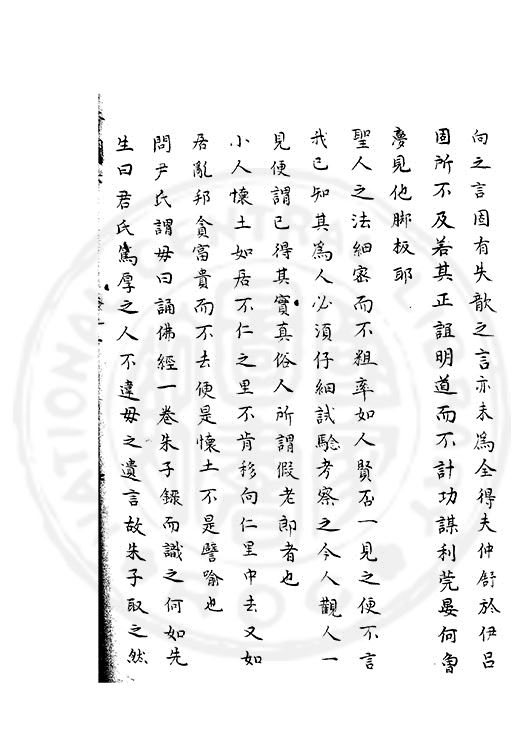 向之言固有失歆之言亦未為全得夫仲舒於伊呂
固所不及若其正誼明道而不計功謀利莞晏何魯
夢見他脚板耶
聖人之法細密而不粗率如人賢否一見之便不言
我已知其為人必須仔細試驗考察之今人觀人一
見便謂已得其實真俗人所謂假老郎者也
小人懷土如居不仁之里不肯移向仁里中去又如
居亂邦貪富貴而不去便是懷土不是譬喻也
問尹氏謂毋曰誦佛經一卷朱子錄而識之何如先
生曰君氏篤厚之人不違毋之遺言故朱子取之然